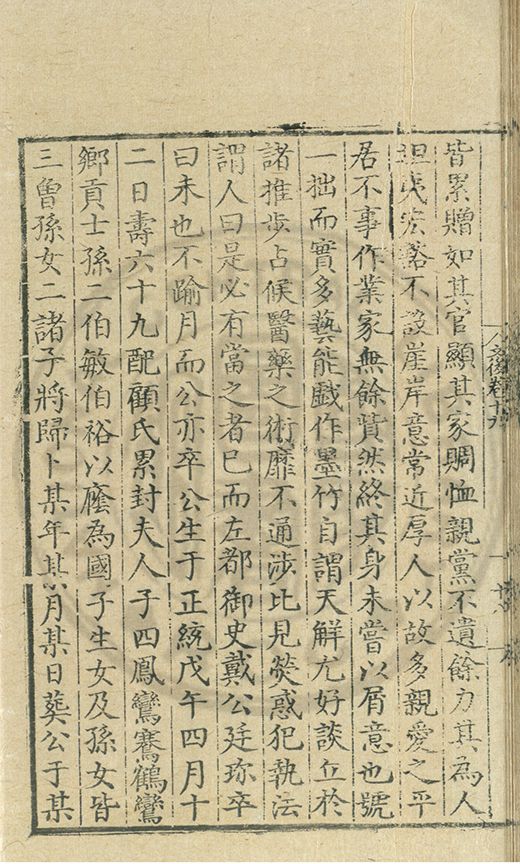 皆累贈如其官顯其家賙恤親黨不遺餘力其為人
坦夷宏豁不設崖岸意常近厚人以故多親愛之平
居不事作業家無餘貲然終其身未嘗以屑意也號
一拙而實多藝能戲作墨竹自謂天解尤好談丘於
諸推步占候醫藥之術靡不通涉比見熒惑犯執法
謂人曰是必有當之者已而左都御史戴公廷珍卒
曰未也不踰月而公亦卒公生于正統戊午四月十
二日壽六十九配顧氏累封夫人子四鳳鸞騫鶴鸞
鄉貢士孫二伯敏伯裕以廕為國子生女及孫女皆
三曾孫女二諸子將歸卜某年某月某日葬公于某